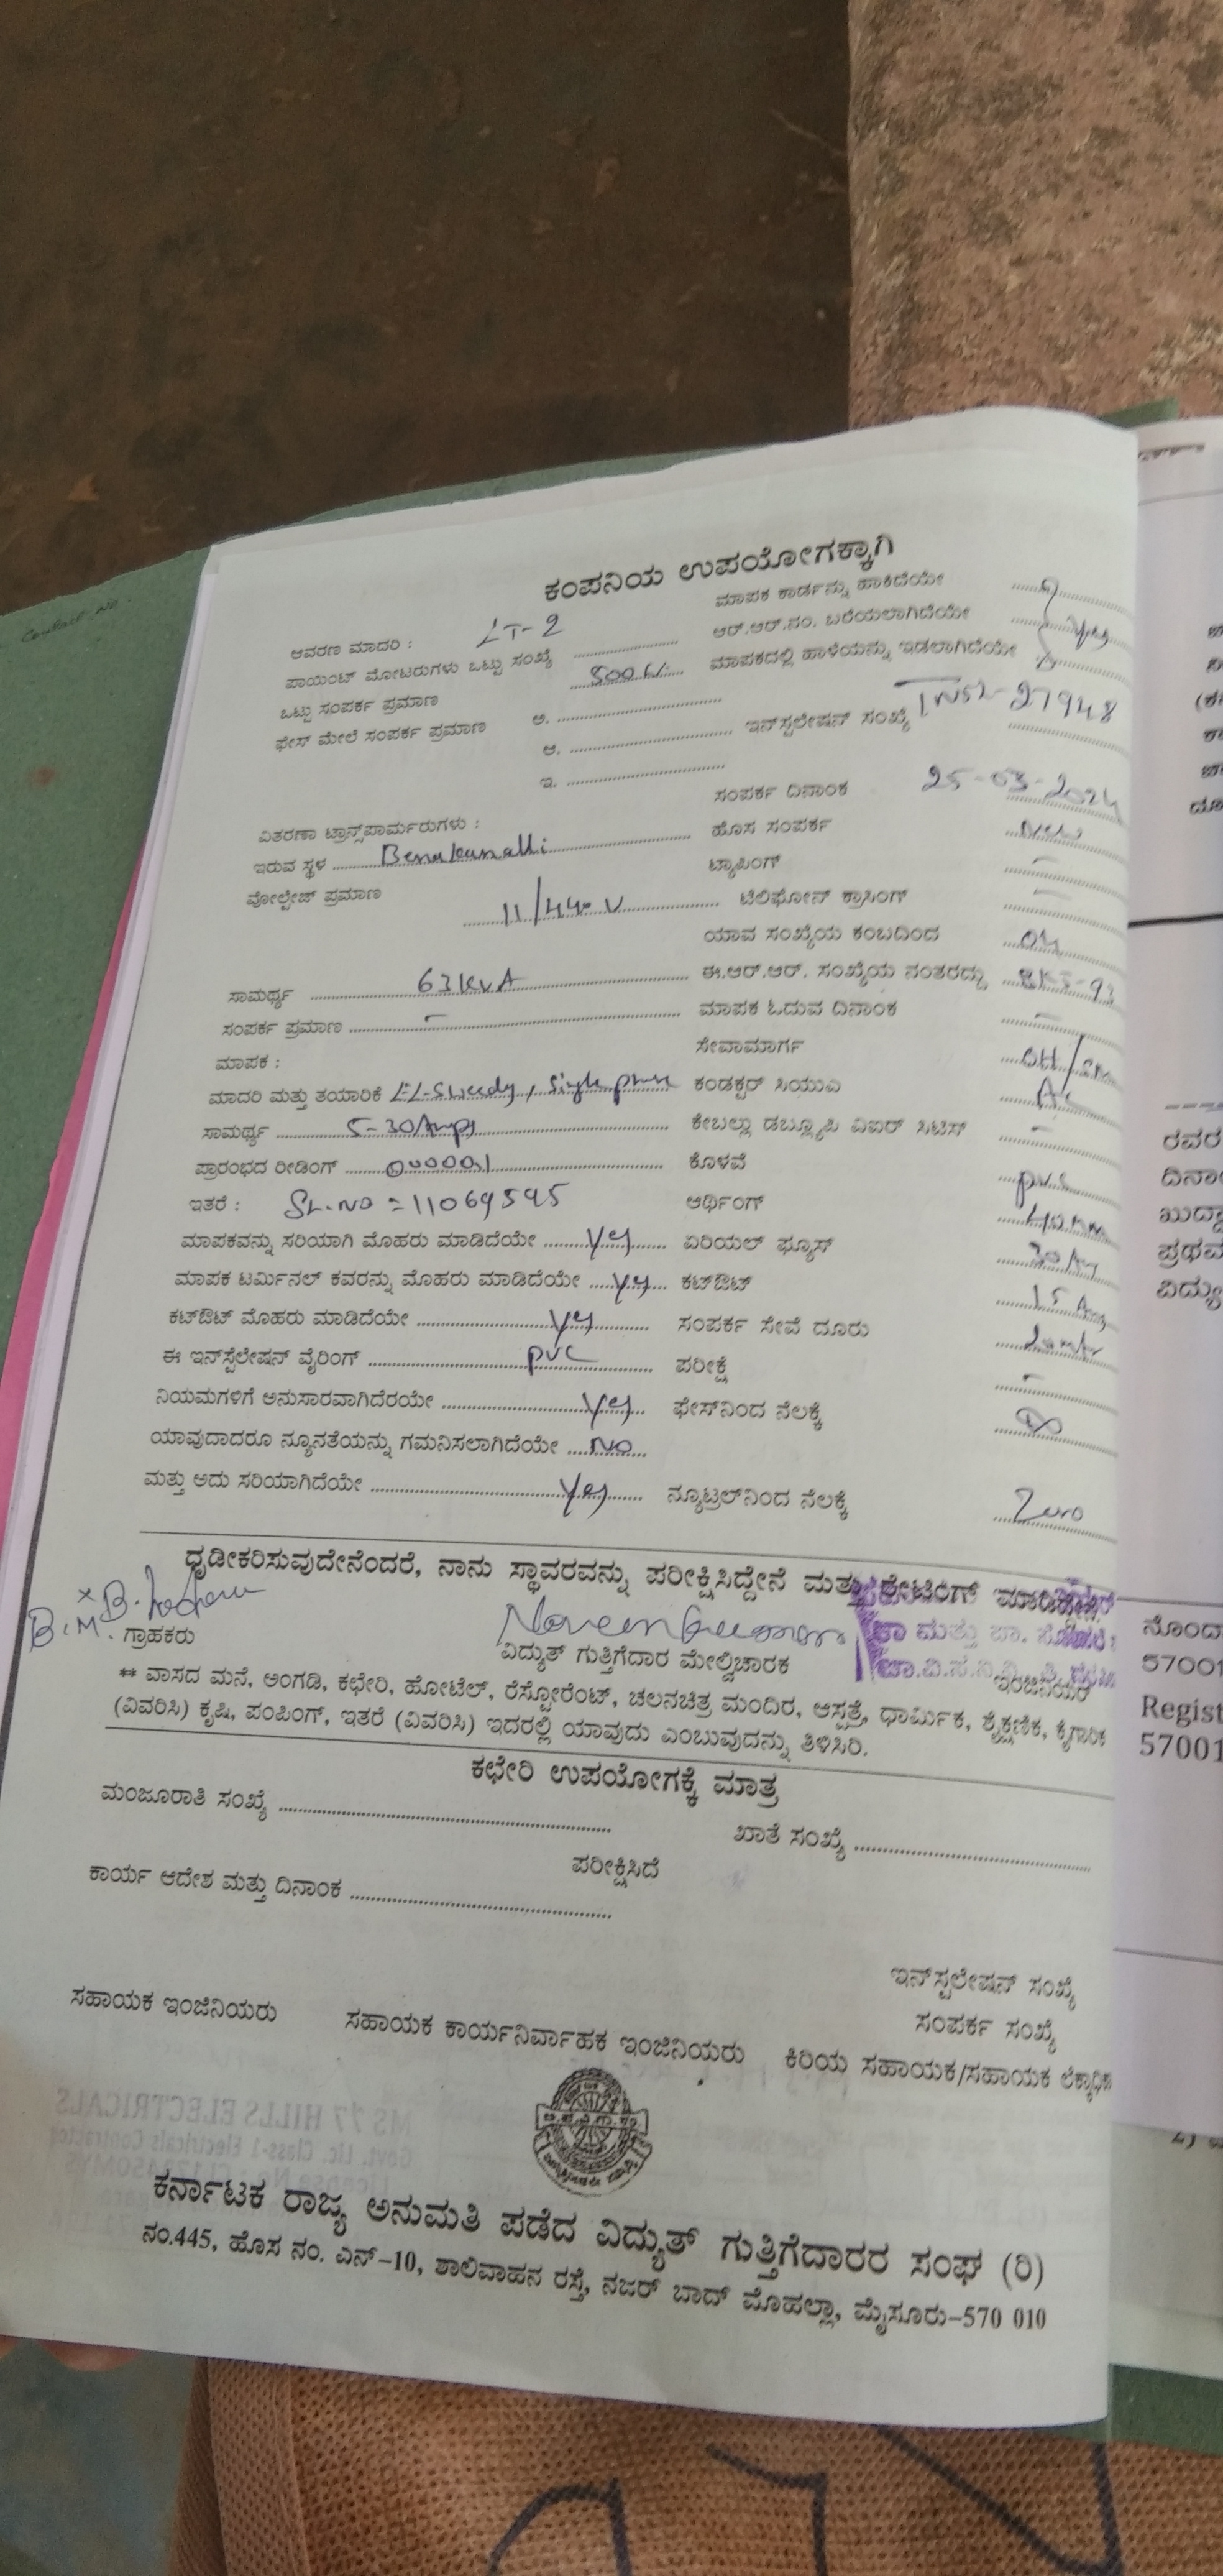 ಕಂಪನಿಯ ಉಪಯೋಗಕ್ಕಾಗಿ
ಆವರಣ ಮಾದರಿ : LT-2 ಮಾಪಕ ಕಾರ್ಡನ್ನು ಹಾಕಿದೆಯೇ
ಪಾಯಿಂಟ್ ಮೋಟರುಗಳು ಒಟ್ಟು ಸಂಖ್ಯೆ ಆರ್.ಆರ್.ನಂ. ಬರೆಯಲಾಗಿದೆಯೇ
ಒಟ್ಟು ಸಂಪರ್ಕ ಪ್ರಮಾಣ 500 W ಮಾಪಕದಲ್ಲಿ ಹಾಳೆಯನ್ನು ಇಡಲಾಗಿದೆಯೇ
ಫೇಸ್ ಮೇಲೆ ಸಂಪರ್ಕ ಪ್ರಮಾಣ ಅ.
ಆ. ಇನ್‌ಸ್ಟಲೇಷನ್ ಸಂಖ್ಯೆ 27948
ಇ.
ಸಂಪರ್ಕ ದಿನಾಂಕ 25-03-2024
ವಿತರಣಾ ಟ್ರಾನ್ಸ್‌ಪಾರ್ಮರುಗಳು : ಹೊಸ ಸಂಪರ್ಕ New
ಇರುವ ಸ್ಥಳ Benakanalli ಟ್ಯಾಪಿಂಗ್ –
ವೋಲ್ಟೇಜ್ ಪ್ರಮಾಣ 11/440 V ಟೆಲಿಫೋನ್ ಕ್ರಾಸಿಂಗ್ –
ಯಾವ ಸಂಖ್ಯೆಯ ಕಂಬದಿಂದ
ಸಾಮರ್ಥ್ಯ 63 KVA ಈ.ಆರ್.ಆರ್. ಸಂಖ್ಯೆಯ ನಂತರದ್ದು
ಸಂಪರ್ಕ ಪ್ರಮಾಣ – ಮಾಪಕ ಓದುವ ದಿನಾಂಕ –
ಮಾಪಕ : ಸೇವಾಮಾರ್ಗ OH/
ಮಾದರಿ ಮತ್ತು ತಯಾರಿಕೆ single phase ಕಂಡಕ್ಟರ್ ಸಿಯುಎ
ಸಾಮರ್ಥ್ಯ 5-30 Amps ಕೇಬಲ್ಲು ಡಬ್ಲ್ಯೂಪಿ ವಿಐಆರ್ ಸಿಟಿಎಸ್ –
ಪ್ರಾರಂಭದ ರೀಡಿಂಗ್ ಕೊಳವೆ pvc
ಇತರೆ : SL.NO = 11069595 ಆರ್ಥಿಂಗ್ 40 mm
ಮಾಪಕವನ್ನು ಸರಿಯಾಗಿ ಮೊಹರು ಮಾಡಿದೆಯೇ Yes ಏರಿಯಲ್ ಫ್ಯೂಸ್
ಮಾಪಕ ಟರ್ಮಿನಲ್ ಕವರನ್ನು ಮೊಹರು ಮಾಡಿದೆಯೇ Yes ಕಟ್‌ಔಟ್ 15 Amp
ಕಟ್‌ಔಟ್ ಮೊಹರು ಮಾಡಿದೆಯೇ Yes ಸಂಪರ್ಕ ಸೇವೆ ದೂರು 20 mtr
ಈ ಇನ್‌ಸ್ಟೆಲೇಷನ್ ವೈರಿಂಗ್ pvc ಪರೀಕ್ಷೆ –
ನಿಯಮಗಳಿಗೆ ಅನುಸಾರವಾಗಿದೆರಯೇ Yes ಫೇಸ್‌ನಿಂದ ನೆಲಕ್ಕೆ ∞
ಯಾವುದಾದರೂ ನ್ಯೂನತೆಯನ್ನು ಗಮನಿಸಲಾಗಿದೆಯೇ No
ಮತ್ತು ಅದು ಸರಿಯಾಗಿದೆಯೇ Yes ನ್ಯೂಟ್ರಲ್‌ನಿಂದ ನೆಲಕ್ಕೆ Zero
ಧೃಡೀಕರಿಸುವುದೇನೆಂದರೆ, ನಾನು ಸ್ಥಾವರವನ್ನು ಪರೀಕ್ಷಿಸಿದ್ದೇನೆ ಮತ್ತು ರೇಟಿಂಗ್ ಮಾಡಿದ್ದೇನೆ
ಗ್ರಾಹಕರು ವಿದ್ಯುತ್ ಗುತ್ತಿಗೆದಾರ ಮೇಲ್ವಿಚಾರಕ ಇಂಜಿನಿಯರ್
** ವಾಸದ ಮನೆ, ಅಂಗಡಿ, ಕಛೇರಿ, ಹೋಟೆಲ್, ರೆಸ್ಟೋರೆಂಟ್, ಚಲನಚಿತ್ರ ಮಂದಿರ, ಆಸ್ಪತ್ರೆ, ಧಾರ್ಮಿಕ, ಶೈಕ್ಷಣಿಕ, ಕೈಗಾರಿಕ
(ವಿವರಿಸಿ) ಕೃಷಿ, ಪಂಪಿಂಗ್, ಇತರೆ (ವಿವರಿಸಿ) ಇದರಲ್ಲಿ ಯಾವುದು ಎಂಬುವುದನ್ನು ತಿಳಿಸಿರಿ.
ಕಛೇರಿ ಉಪಯೋಗಕ್ಕೆ ಮಾತ್ರ
ಮಂಜೂರಾತಿ ಸಂಖ್ಯೆ ಖಾತೆ ಸಂಖ್ಯೆ
ಪರೀಕ್ಷಿಸಿದೆ
ಕಾರ್ಯ ಆದೇಶ ಮತ್ತು ದಿನಾಂಕ
ಇನ್‌ಸ್ಟಲೇಷನ್ ಸಂಖ್ಯೆ
ಸಂಪರ್ಕ ಸಂಖ್ಯೆ
ಸಹಾಯಕ ಇಂಜಿನಿಯರು ಸಹಾಯಕ ಕಾರ್ಯನಿರ್ವಾಹಕ ಇಂಜಿನಿಯರು ಕಿರಿಯ ಸಹಾಯಕ/ಸಹಾಯಕ
ಕರ್ನಾಟಕ ರಾಜ್ಯ ಅನುಮತಿ ಪಡೆದ ವಿದ್ಯುತ್ ಗುತ್ತಿಗೆದಾರರ ಸಂಘ (ರಿ)
ನಂ.445, ಹೊಸ ನಂ. ಎನ್-10, ಶಾಲಿವಾಹನ ರಸ್ತೆ, ನಜರ್ ಬಾದ್ ಮೊಹಲ್ಲಾ, ಮೈಸೂರು-570 010
ನೊಂದ
57001
Regist
57001